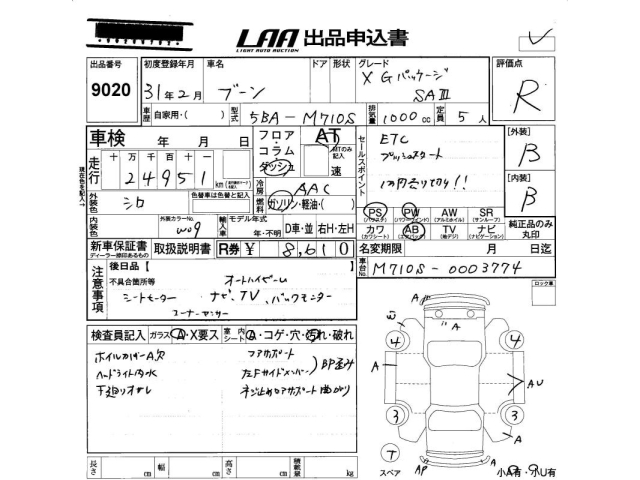 LAA 出品申込書
LIGHT AUTO AUCTION
出品番号 初度登録年月 車名 ドア 形状 グレード 評価点
9020 31年2月 ブーン X Gパッケージ SAⅢ R
車歴 自家用・( ) 型式 5BA-M710S 排気量 1000cc 定員 5人
車検 年 月 日 フロア・コラム・ダッシュ AT ATのみ記入 速
セールスポイント ETC
プッシュスタート
1円売り切り!!
[外装] B
[内装] B
走行 十万千百十 24951 km
冷房 AAC
外装色 シロ 色替車は色替と記入
燃料 ガソリン・軽油・( )
内装色 外装カラーNo. W09 輸入車 モデル年式 年・不明 D車・並 右H・左H
PS PW AW SR
(パワステ) (パワーウィンドウ) (アルミホイル) (サンルーフ)
カワ AB TV ナビ
(カワシート) (エアバッグ) (地デジ) (ナビゲーション)
純正品のみ丸印
新車保証書 取扱説明書 R券 ¥ 8,610 名変期限 月 日迄
ディーラー捺印あるもの
車台No. M710S-0003774
注意事項 後日品【
不具合箇所等 オートハイビーム
シートモーター ナビ、TV、バックモニター
コーナーセンサー
ロック車
検査員記入 ガラス A・X要ス 室内シート A・コゲ・穴・汚れ・破れ
ホイルカバーA欠 コアサポート
ヘッドライト内水 左Fサイドメンバー )BP歪み
下廻りオサレ ネジ止めロアサポート曲がり
A A
W
4 4
A AU
3 3
A
T
スペア AP A 小A有・小U有
長さ cm 幅 cm 高さ cm 積載量 kg